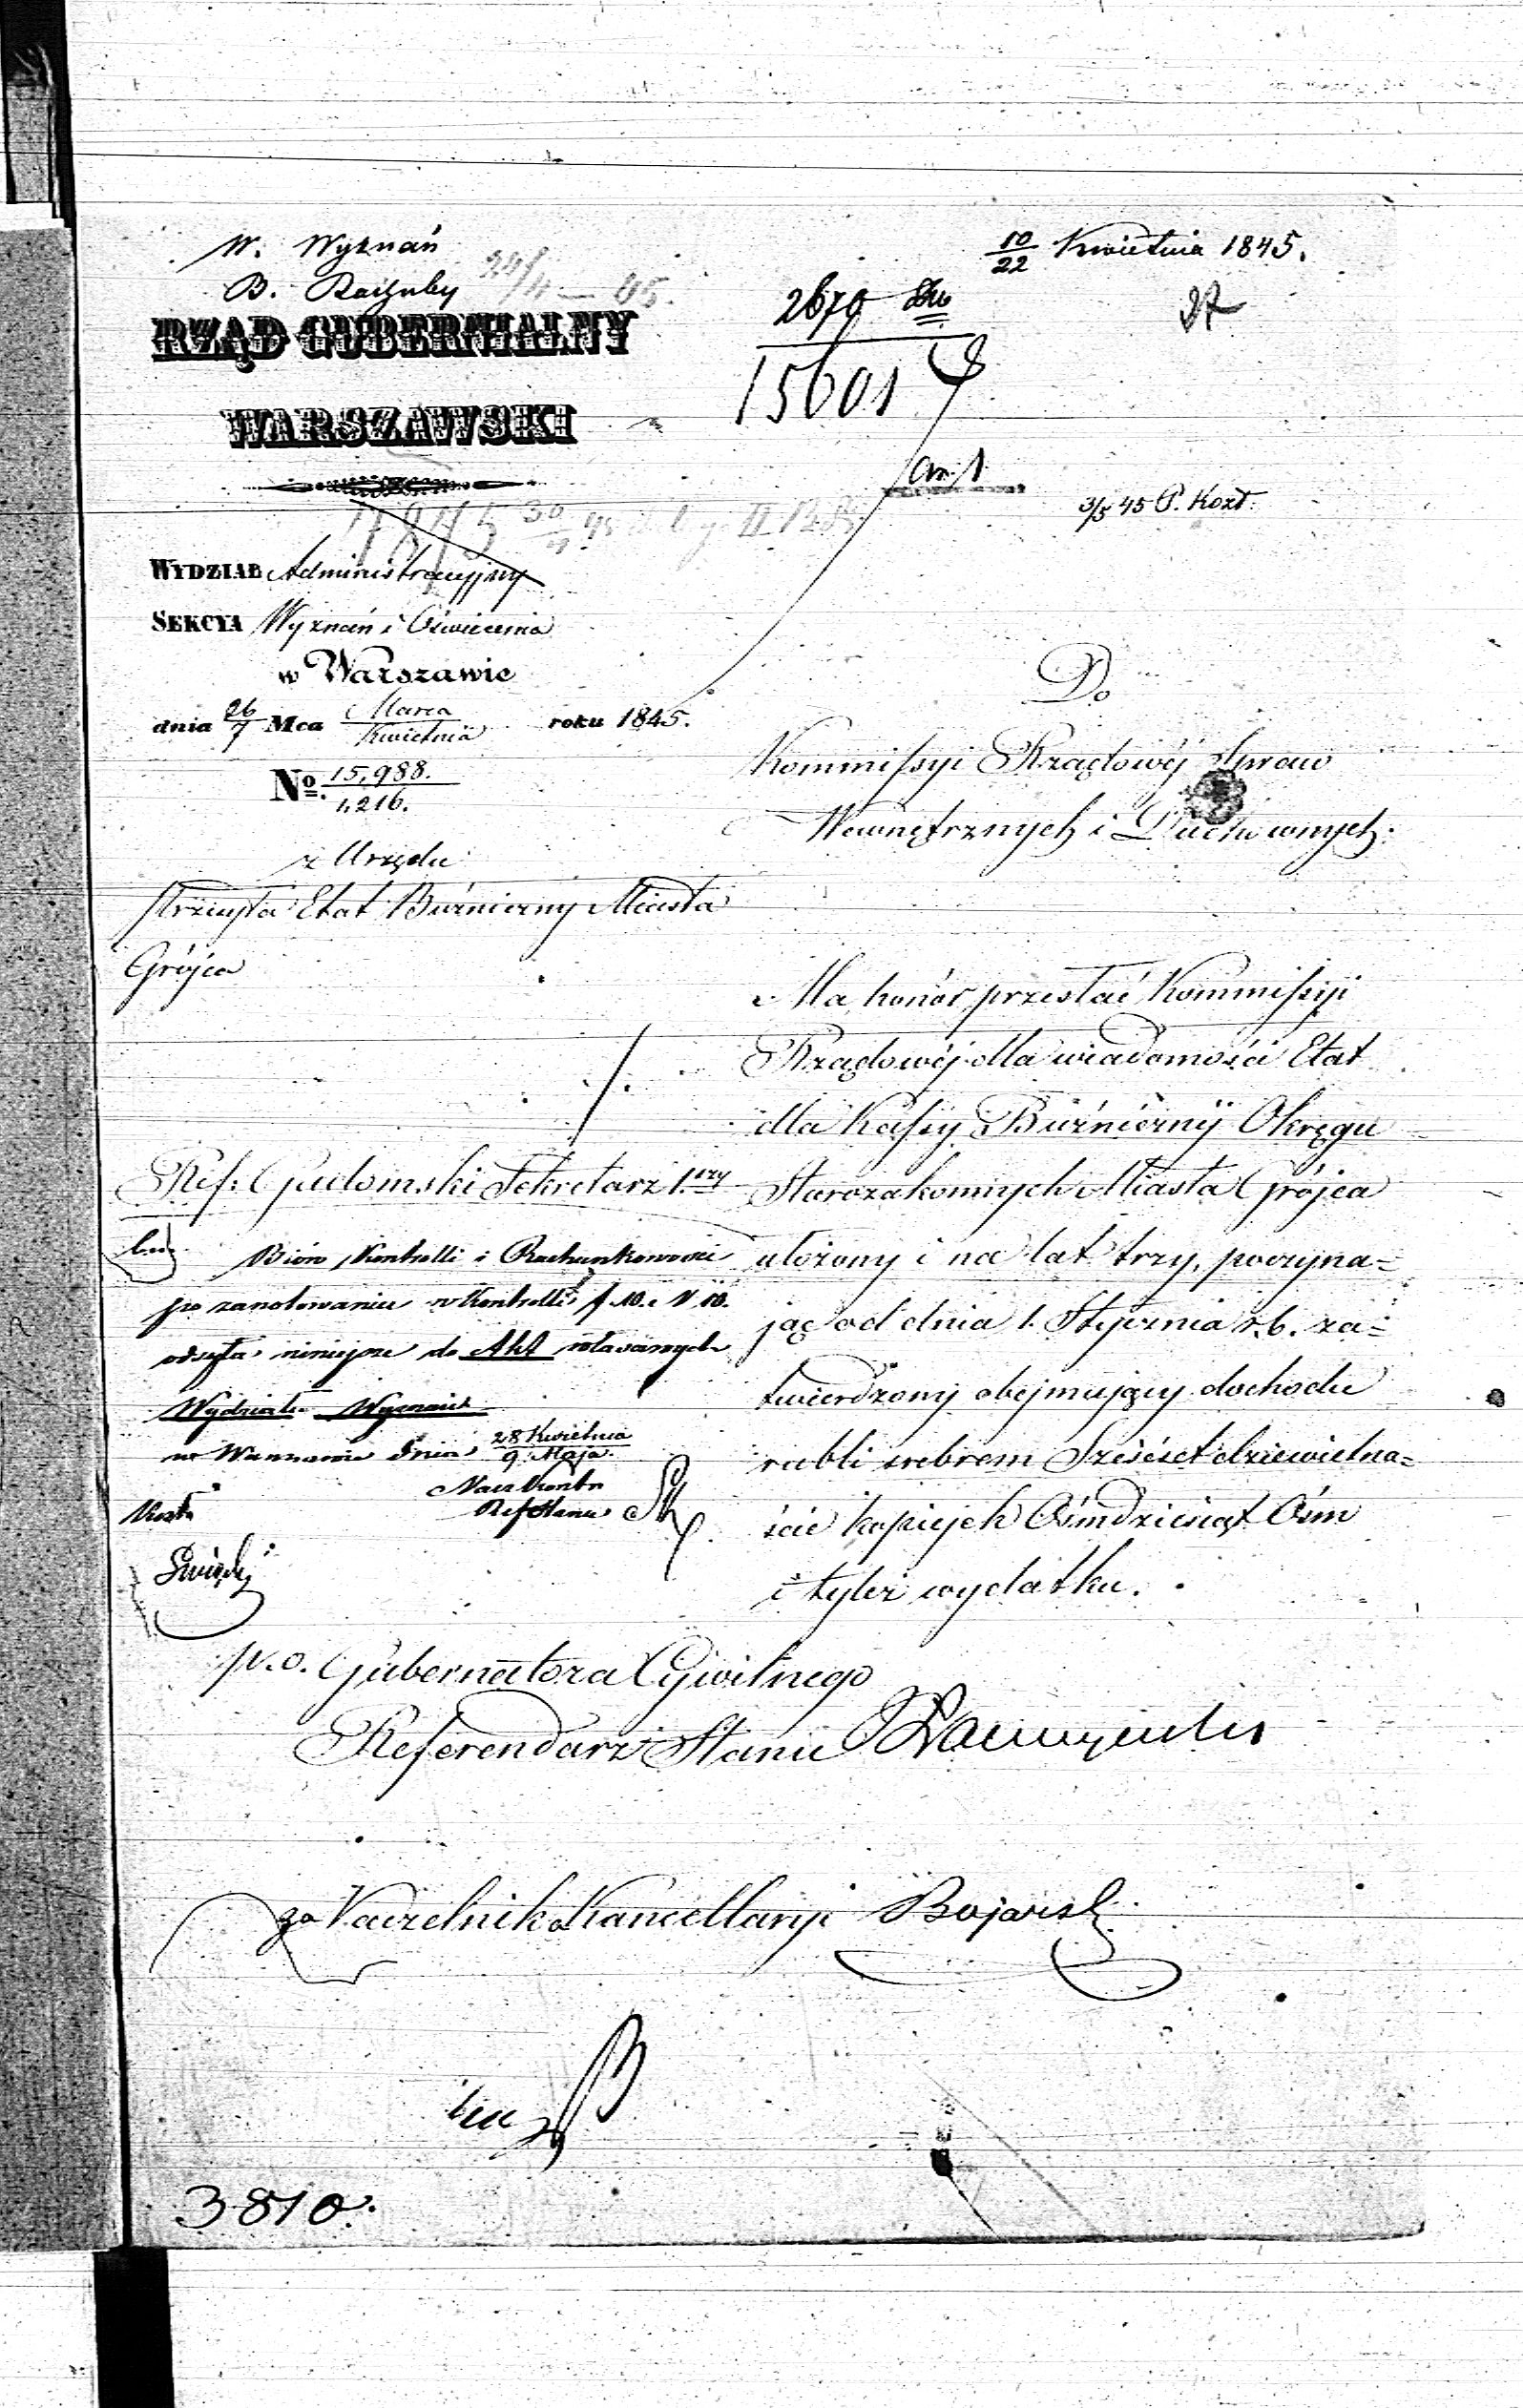 W. Wyznań
B. Rachuby
24/4 – 45.
10/22 Kwietnia 1845.
2670
15601
37
RZĄD GUBERNIALNY
WARSZAWSKI
Ar. 1
3/5 45 P. Kozt.
WYDZIAŁ Administracyjny
SEKCYA Wyznań i Oświecenia
w Warszawie
dnia 26/7 Mca Marca/Kwietnia roku 1845.
No. 15,988./1,216.
z Urzędu
Przesyła Etat Bużniczny Miasta
Grójca
Do
Kommissyi Rządowéj Spraw
Wewnętrznych i Duchownych.
Ma honor przesłać Kommissyi
Rządowéj dla wiadomości Etat
dla Kassy Bużnicznéj Okręgu
Starozakonnych Miasta Grójca
ułożony i na lat trzy, poczyna=
jąc od dnia 1. Stycznia r. b. za=
twierdzony obejmujący dochodu
rubli srebrem Sześćset dziewietna=
ście kopiejek Ośmdziesiąt Ośm
i tyleż wydatku.
Ref: Gudomski Sekretarz 1.szy
Biuro Kontrolli i Rachunkowości
po zanotowaniu w Kontrolli f. 10. N 10.
odsyła niniejsze do Akt właściwych
Wydziału Wyznań
w Warszawie dnia 28 Kwietnia/9 Maja.
Nacz Kontr
Ref Stanu
p. o. Gubernatora Cywilnego
Referendarz Stanu
za Naczelnik Kancellaryi Bojarski
3810.